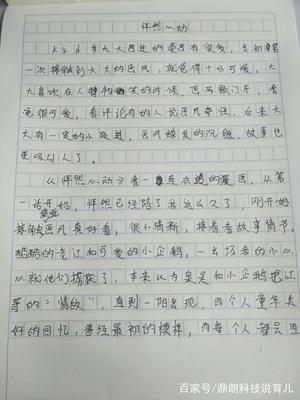 怦然心动
kid大大画过的漫画有很多，当初第
一次接触到大大的画风，就觉得十分可爱，大
大喜欢在人的时候，画两颗门牙，感
觉很可爱，看评论有的人说画风奇怪，后来大
大有一定的小改进，画风越发的沉稳，故事也
更吸引人了。
从怦然心动我一直在追的漫画，从第
一话开始，怦然已经陪了我这么久了，刚开始
接触觉画风真好看，很小清新，接着看故事情节，
酷酷的吏江和可爱的小企鹅，一出场我的小心
心就被他们捕获了，本来以为吴昊和小企鹅是江
哥的“情敌”，直到一阳出现，四个人童年美
好的回忆，曾经最初的模样，而每个人都会因
百家号/鼎朗科技说育儿